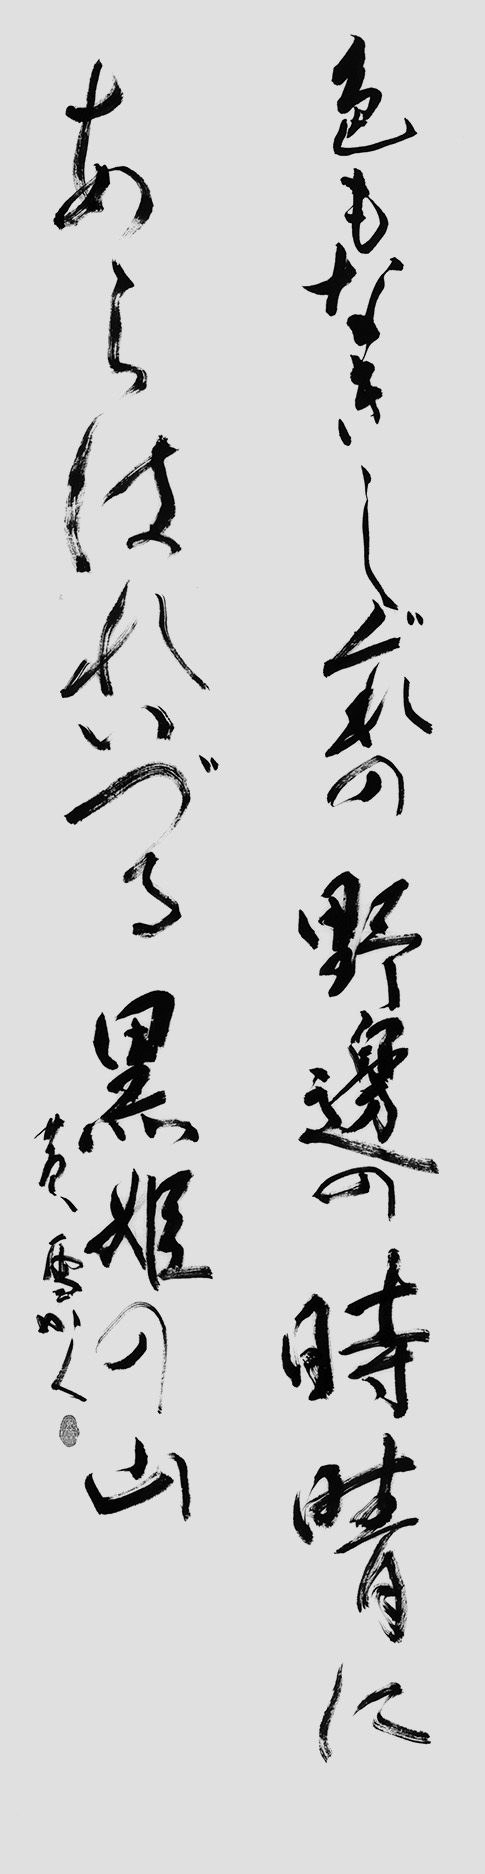 色もなきしぐれの野邊の時晴に
あらはれいづる黒姫の山
黄雪山人